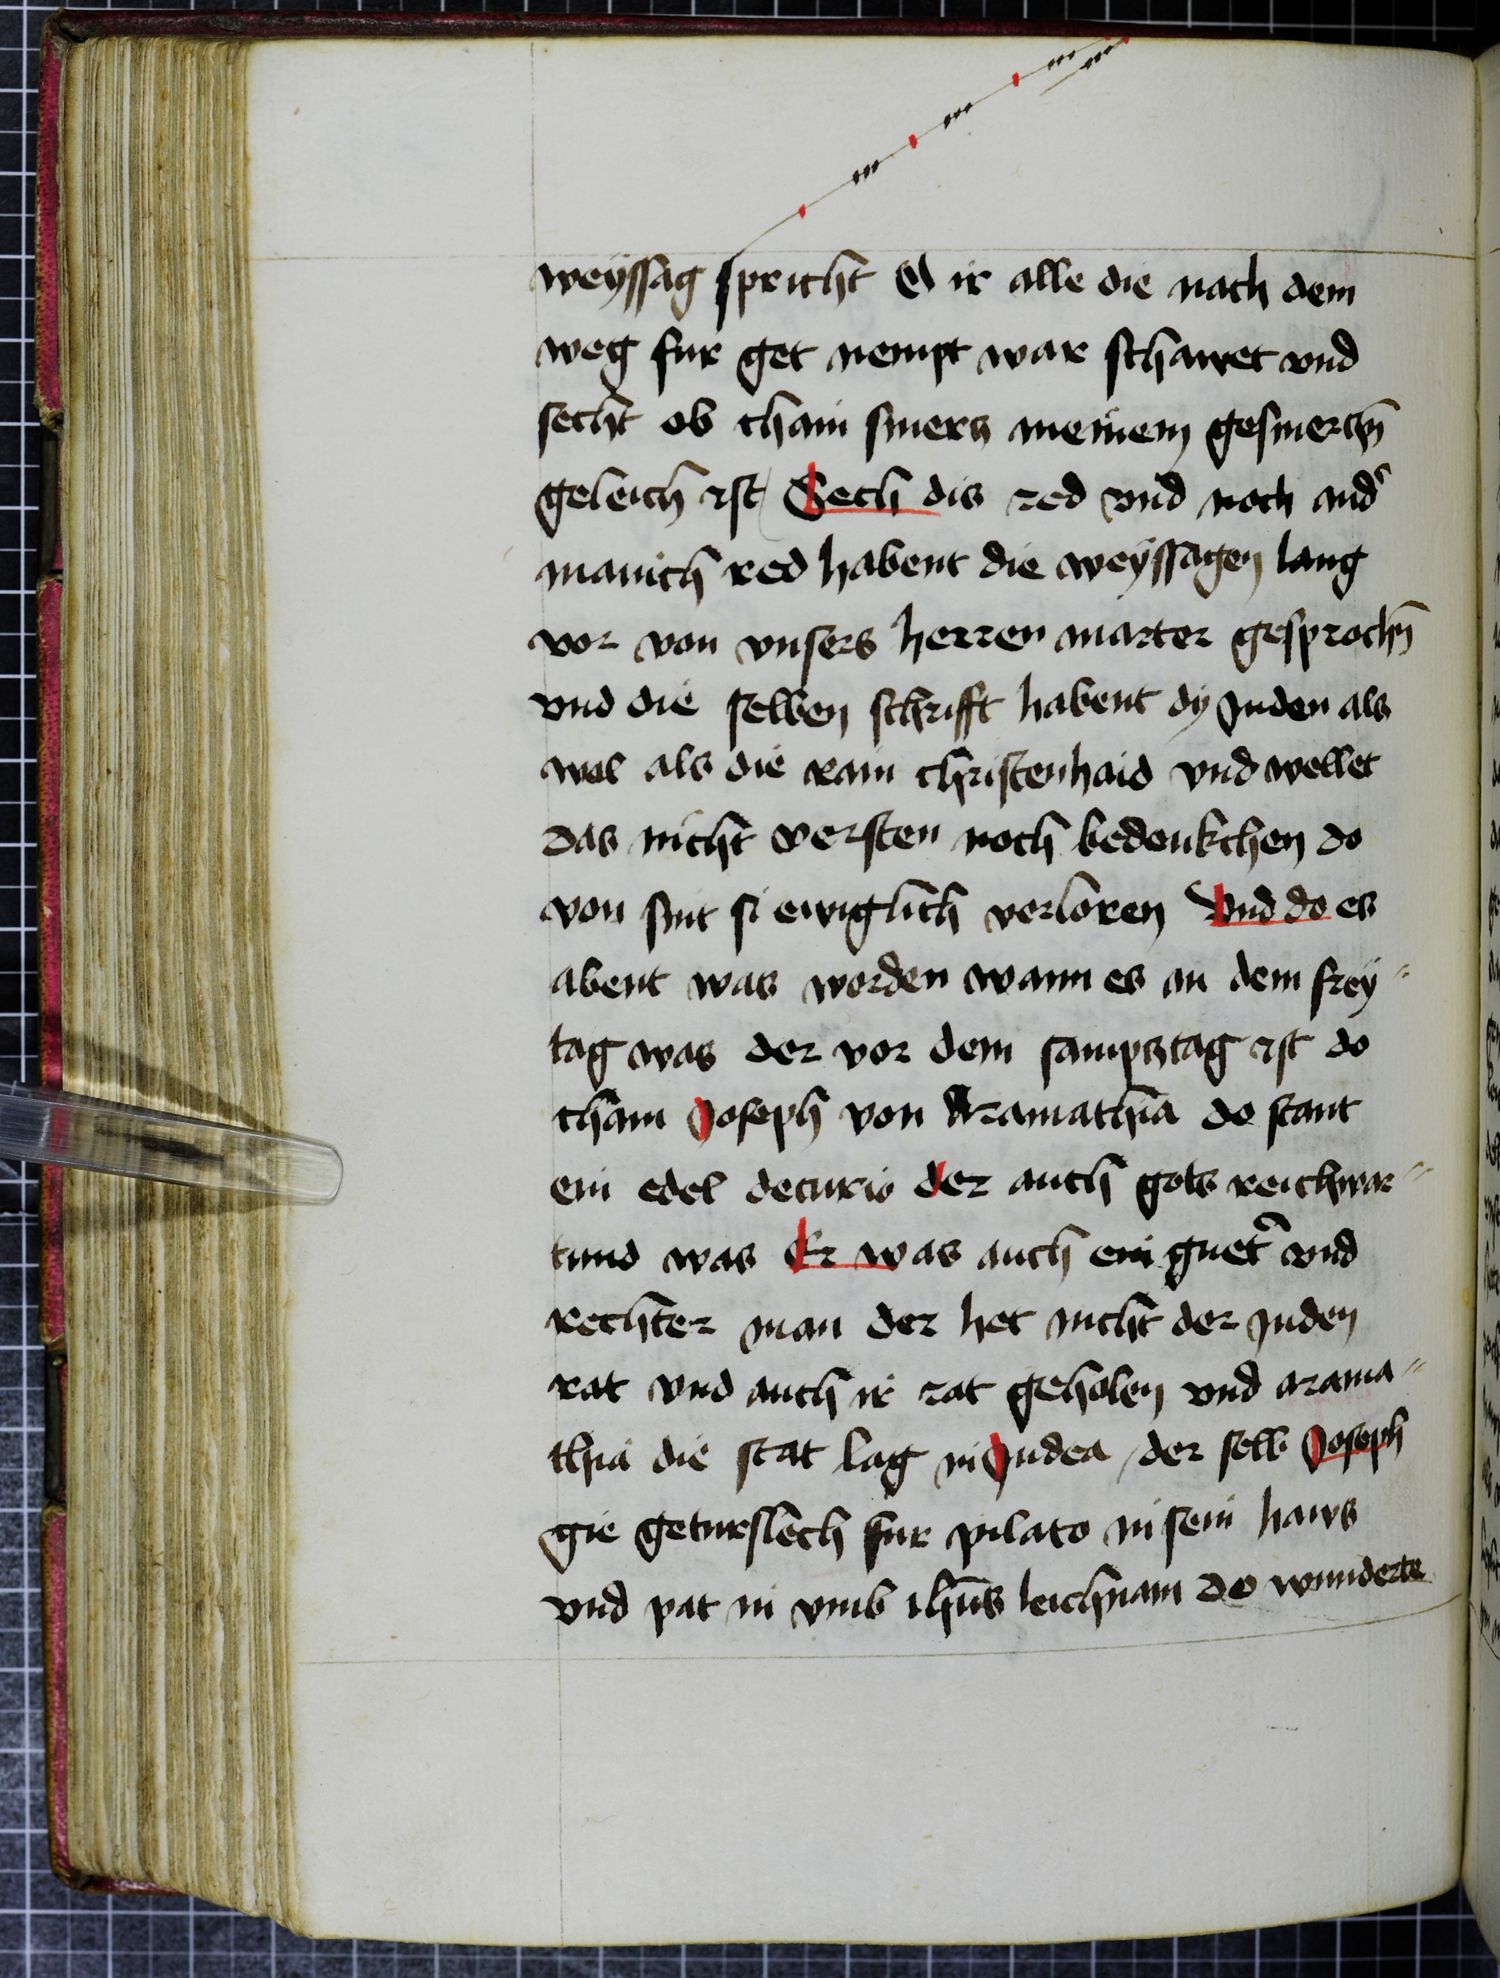 weyssag spricht O ir alle die nach dem
weg fur get nempt war schawet vnd
secht ob chain smercz meinem gesmerczn̄
geleich ist Sech dis red vnd noch and̾
manich red habent die weyssagen lang
vor von vnsers herren marter gesprochn̄
vnd die selben schrifft habent dy Juden als
wol als die rain christenhaid vnd wellet
das nicht versten noch bedenkchen do
von sint si ewiglich verloren Vnd do es
abent was worden wann es an dem frey⸗
tag was der vor dem sampcztag ist do
cham Joseph von Aramathia do stant
ein edel decurio der auch gots reich war⸗
tund was Er was auch ein guet̾ vnd
rechter man der het nicht der Juden
rat vnd auch ir rat geholen vnd arama⸗
thia die stat lag in Judea / der selb Joseph
gie geturslech fur pilato in sein haws
vnd pat in vmb ihūs leichnam do wunderte